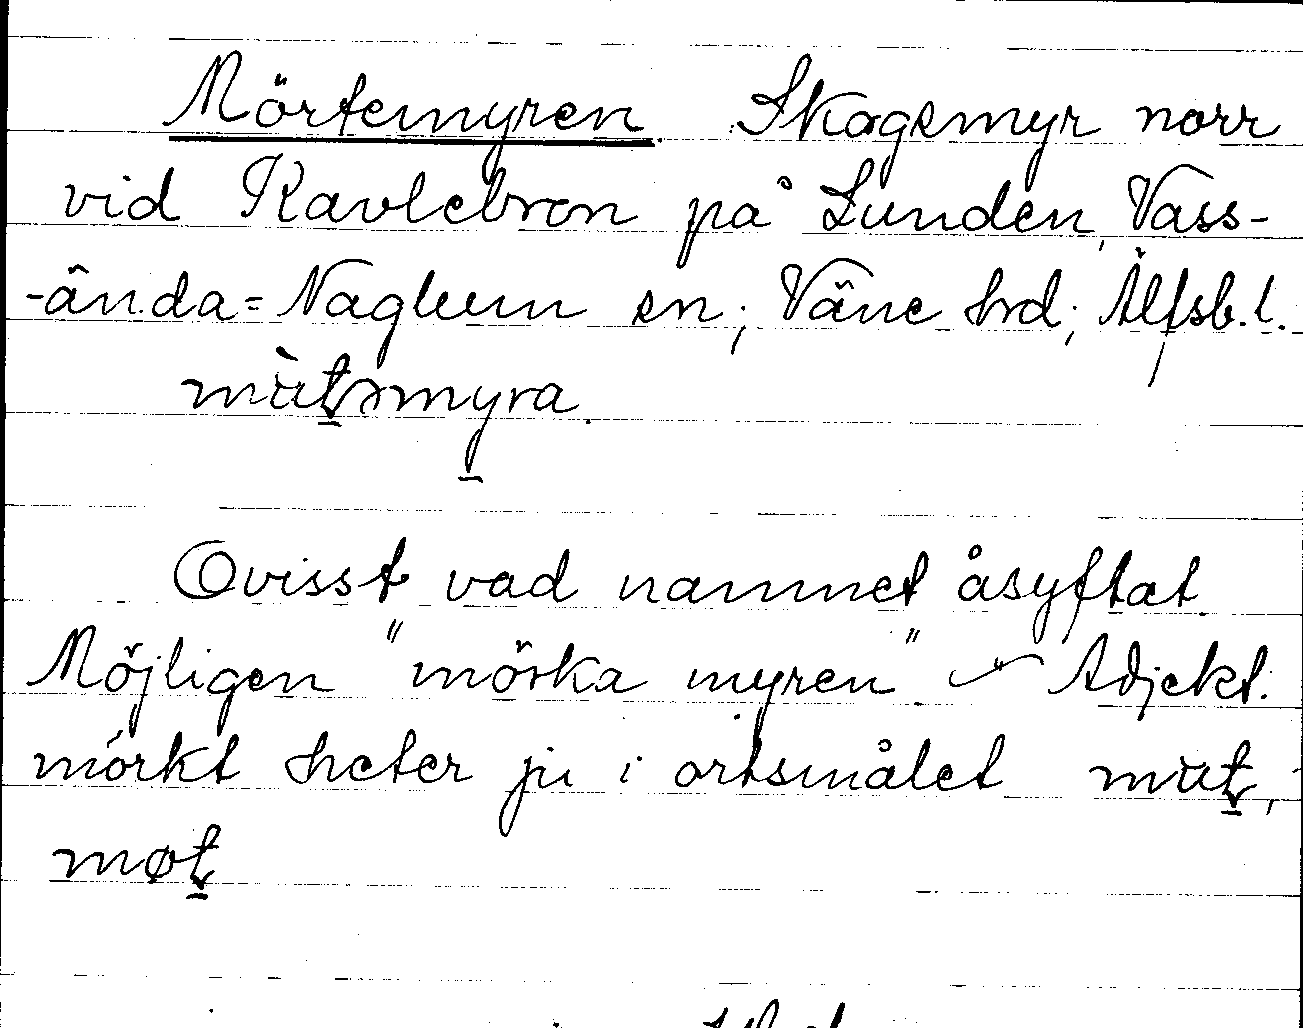 Mörtemyren. Skogsmyr norr
vid Kavlebron på Lunden, Vass-
-ända=Naglum sn; Väne hrd; Älfsb. l.
mùt̠əmyra.
Ovisst vad namnet åsyftat.
Möjligen "mörka myren" Adjekt.
mörkt heter ju i ortsmålet mut̠,
møt̠